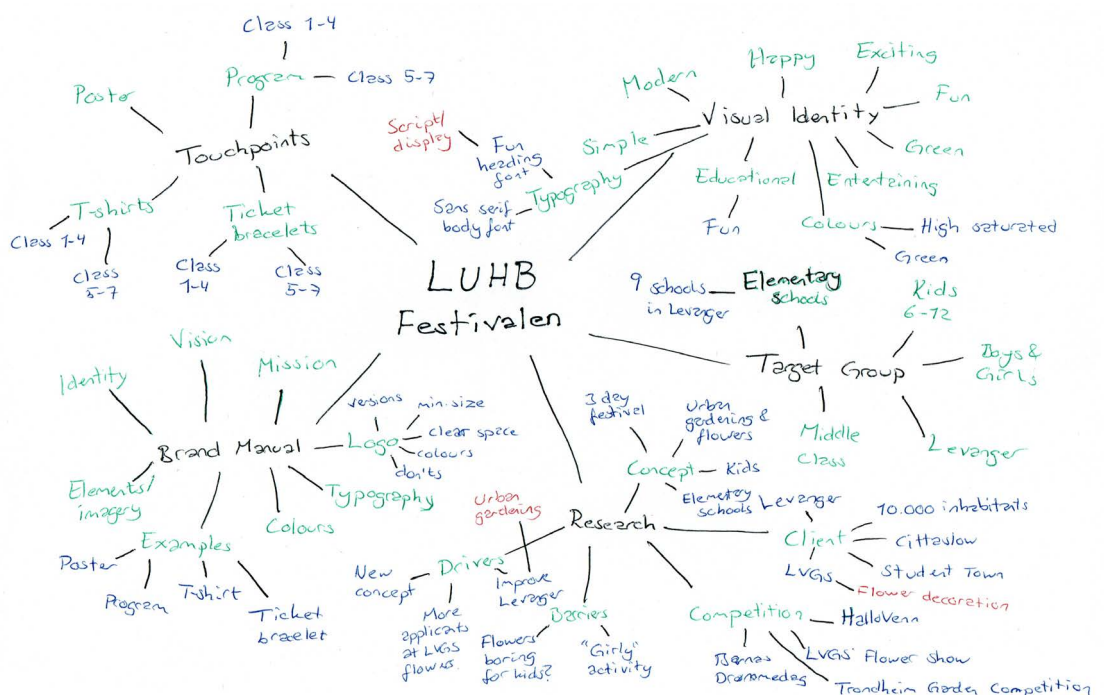 LUHB
Festivalen
Touchpoints
Poster
Program
Class 1-4
Class 5-7
T-shirts
Class 1-4
Class
5-7
Ticket
bracelets
Class
1-4
Class
5-7
Visual Identity
Modern
Happy
Exciting
Fun
Green
Entertaining
Colours
High saturated
Green
Educational
Fun
Simple
Typography
Fun
heading
font
Script/
display
Sans serif
body font
Target Group
Elementary
schools
9 schools
in Levanger
Kids
6-12
Boys &
Girls
Levanger
Middle
Class
Brand Manual
Identity
Vision
Mission
Logo
versions
min.size
clear space
colours
don'ts
Typography
Colours
Examples
Poster
Program
T-shirt
Ticket
bracelet
Elements/
imagery
Research
Concept
3 day
festival
Urban
gardening &
flowers
Kids
Elemetary
schools
Client
Levanger
10.000 inhabitants
Cittaslow
Student Town
LVGS
Flower decoration
Competition
HalloVenn
LVGS Flower show
Trondheim Garden Competition
Barnas
Barriers
Flowers
boring
for kids?
"Girly"
activity
Drivers
New
concept
More
applicants
at LVGS
Improve
Levanger
Urban
gardening